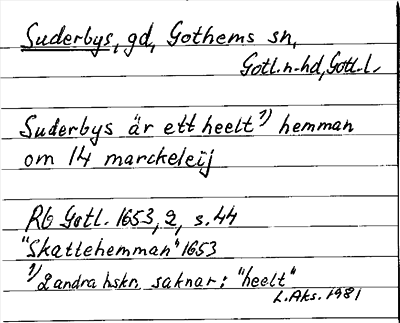 Suderbys, gd, Gothems sn,
Gotl.n-hd, Gotl.l.
Suderbys är ett heelt 1) hemman
om 14 marckeleij
Rb Gotl. 1653, 2, s.44
"Skattehemman" 1653
1) 2 andra hskr. saknar: "heelt"
L.Aks. 1981